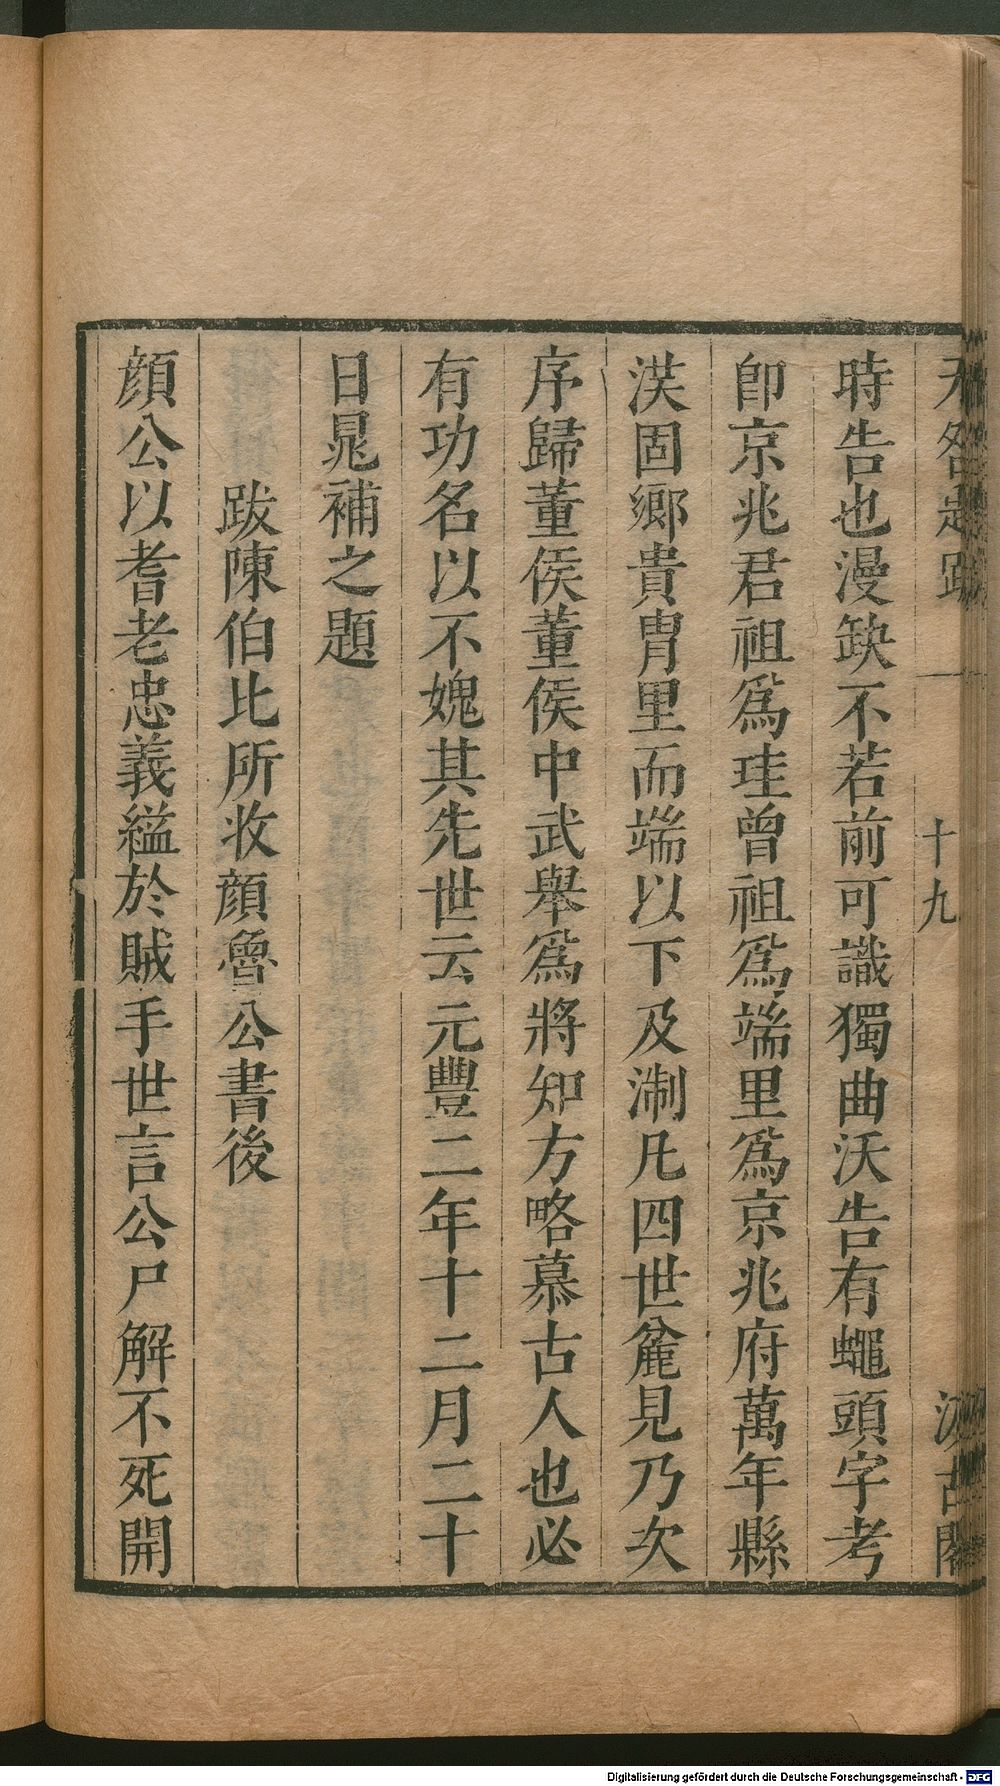 无咎題跋 十九 汲古閣
時告也漫缺不若前可識獨曲沃告有蠅頭字考
卽京兆君祖爲珪曾祖爲端里爲京兆府萬年縣
洪固鄉貴胄里而端以下及淛凡四世麄見乃次
序歸董侯董侯中武舉爲將知方略慕古人也必
有功名以不媿其先世云元豐二年十二月二十
日晁補之題
跋陳伯比所收顔魯公書後
顔公以耆老忠義縊於賊手世言公尸解不死開
Digitalisierung gefördert durch die Deutsche Forschungsgemeinschaft - DFG